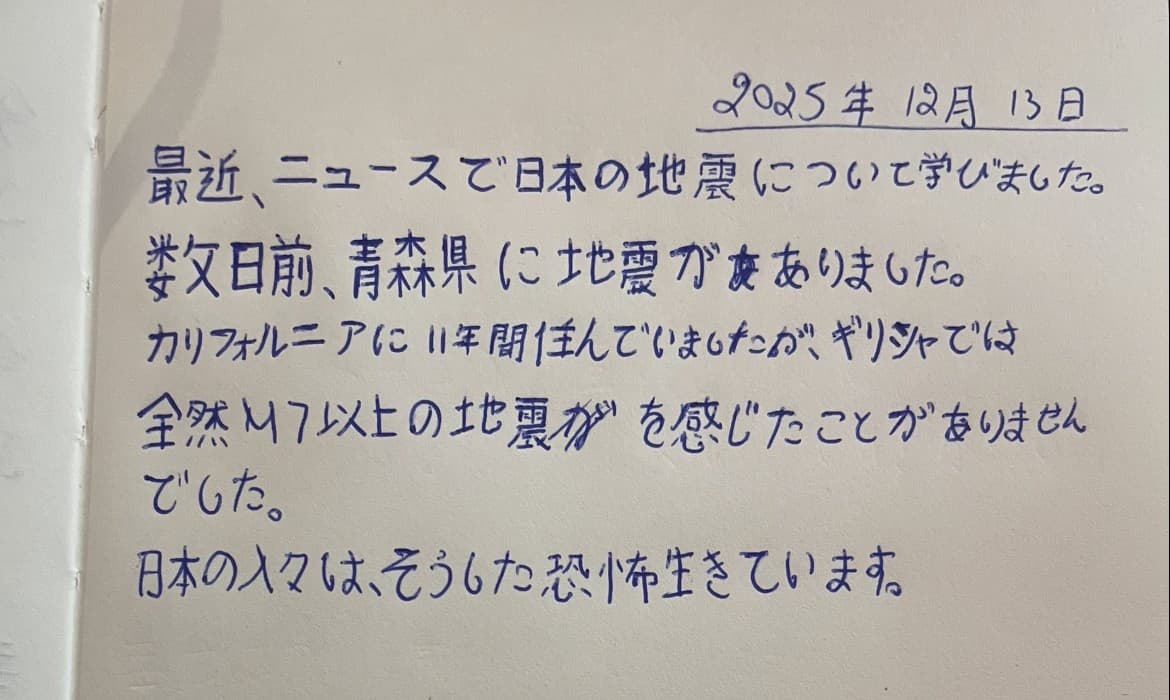 2025年 12月 13日
最近、ニュースで日本の地震について学びました。
数日前、青森県に地震がありました。
カリフォルニアに11年間住んでいましたが、ギリシャでは
全然M7以上の地震を感じたことがありません
でした。
日本の人々は、そうした恐怖生きています。